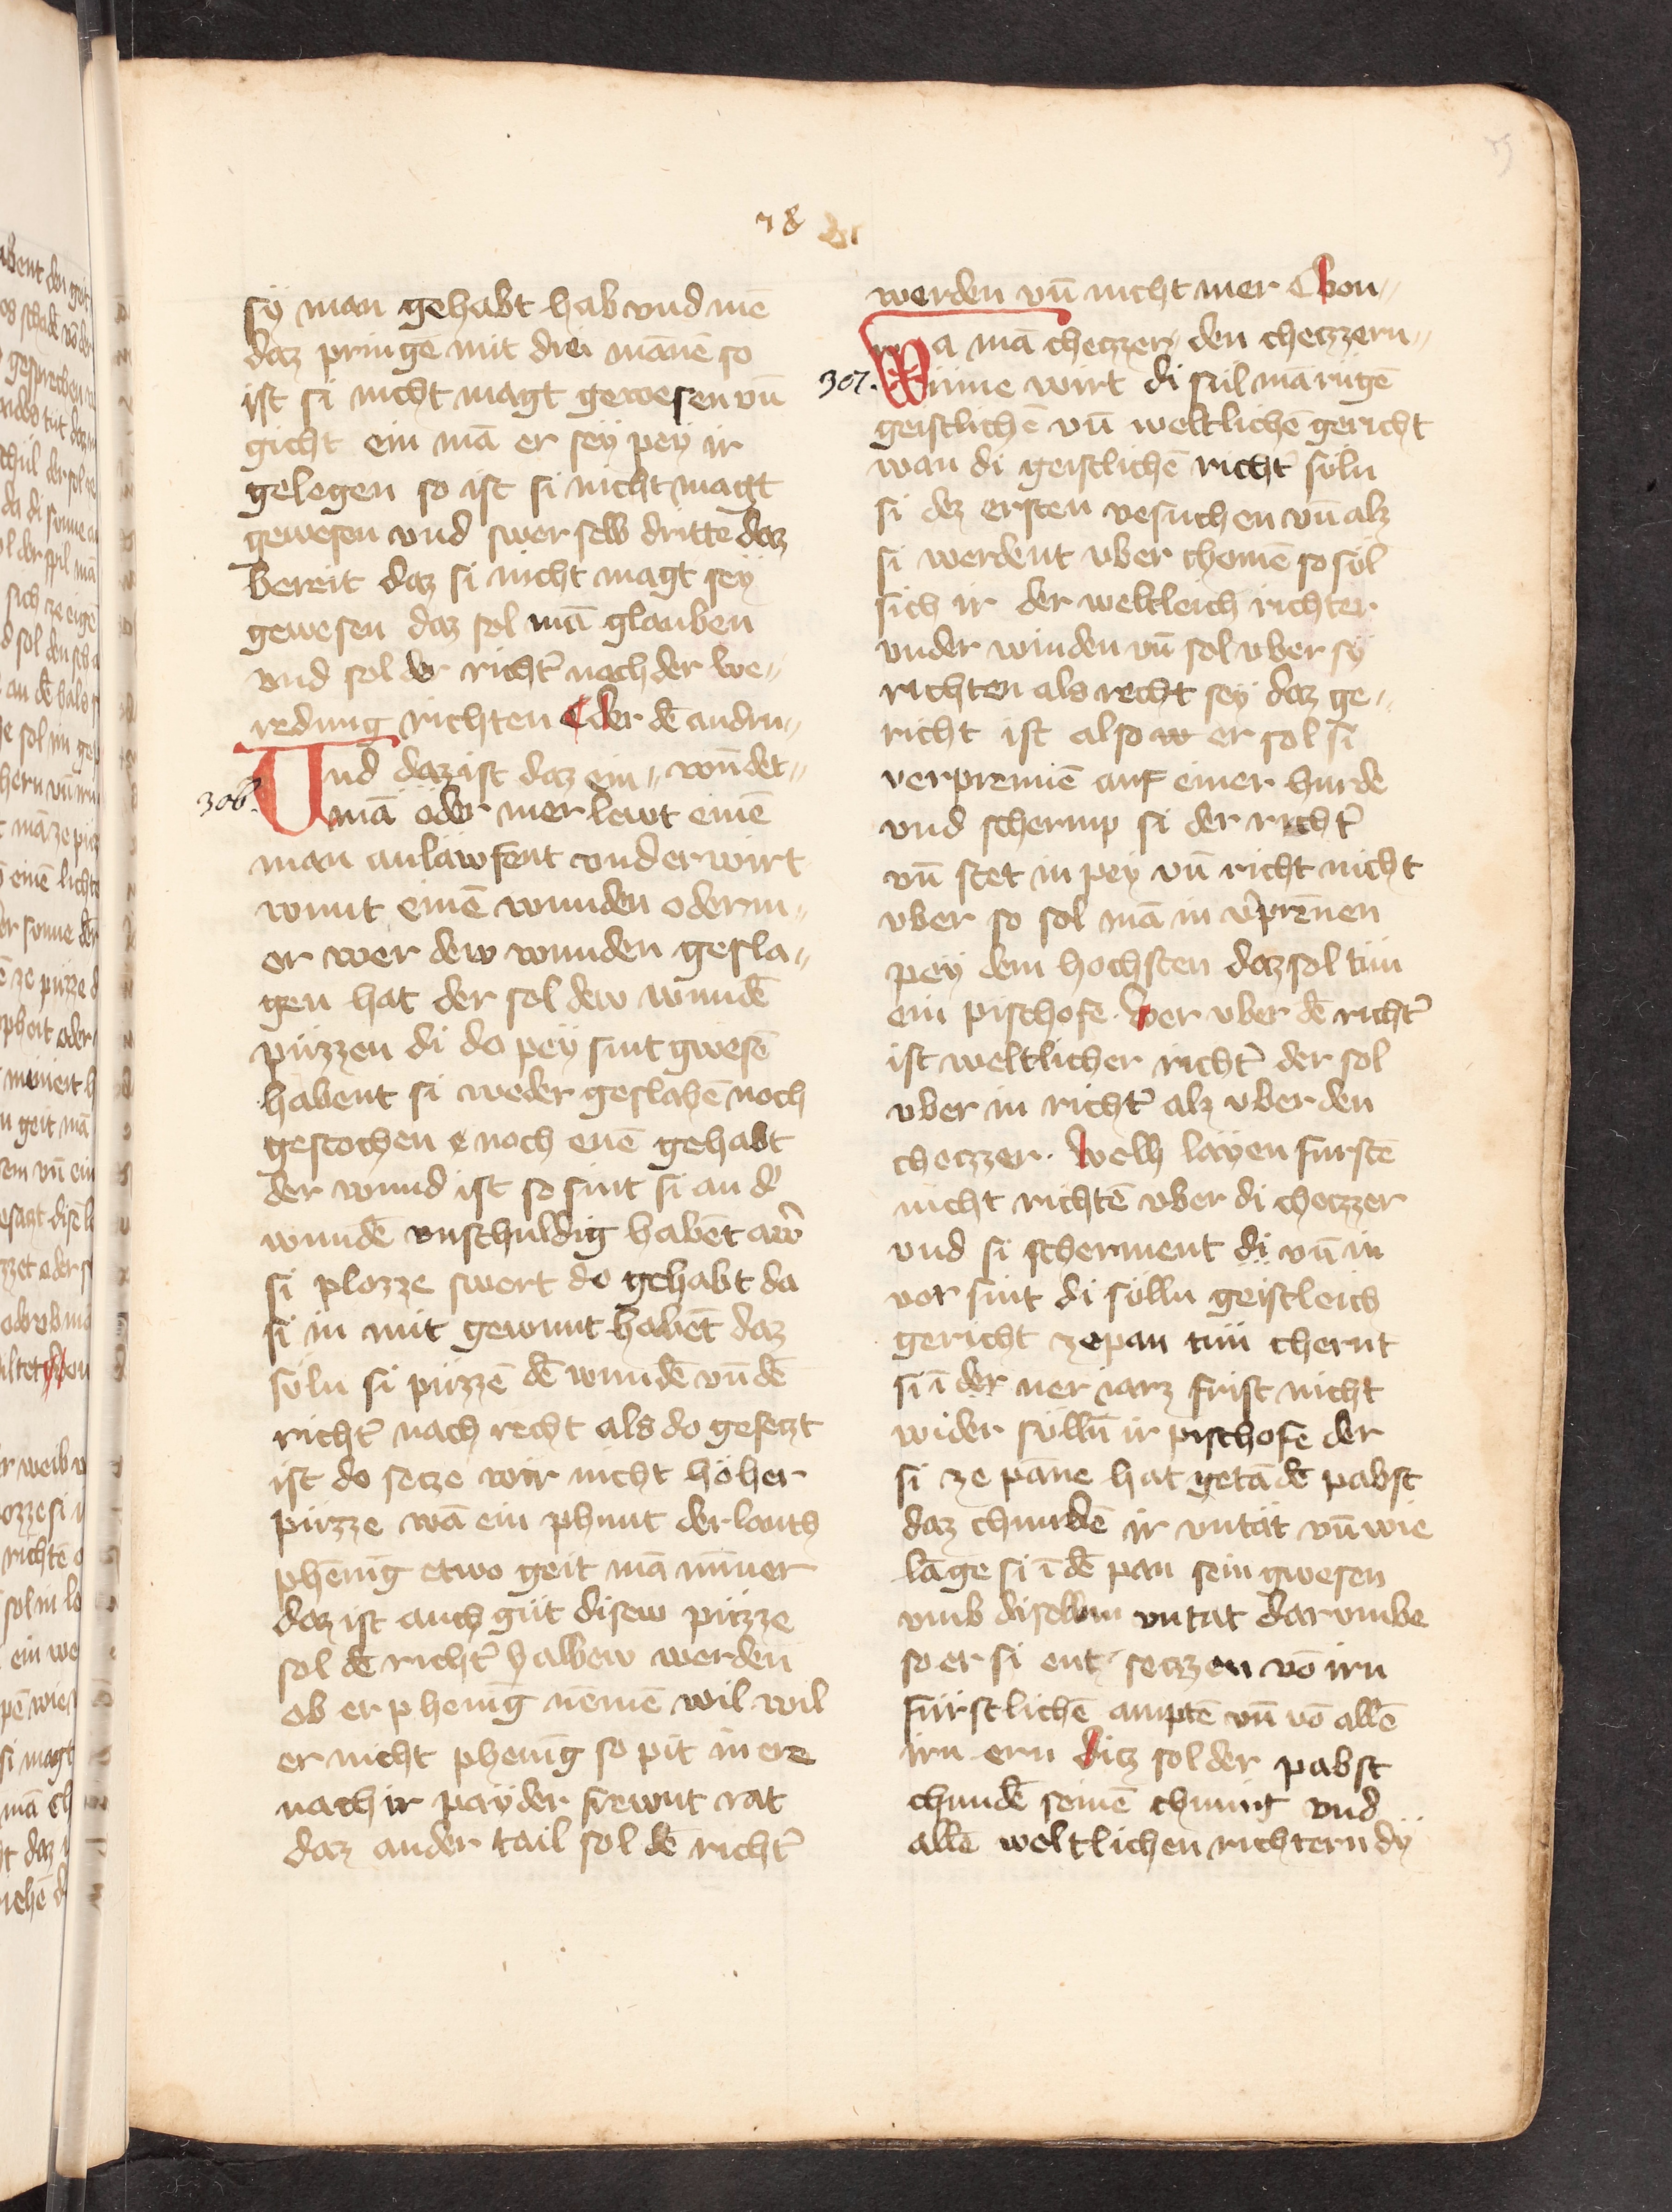 78
sÿ man gehabt hab vnd mē
daz pringē mit drei mānē so
ist si nicht magt gewesen vn̄
gicht ein mā er seÿ peÿ ir
gelegen so ist si nicht magt
gewesen vnd swer selb dritte daz
bereit daz si nicht magt seÿ
gewesen daz sol mā glauben
vnd sol der richt̄ nach der be⸗
redung richten ¶ der dē andrn⸗
306. Und daz ist daz ein⸗ wūdet⸗
mā oder mer lewt einē
man anläwfent vnd er wirt
wunt einē wunden oder m⸗
er wer dew wunden gesla⸗
gen hat der sol dew wundē
püzzen di do peÿ sint gwesē
habent si weder geslahē noch
gestochen noch enē gehabt
der wund ist so sint si an d̄
wundē vnschuldig habēt aw̄
si plozze swert do gehabt da
si in mit gewunt habēt daz
süln si püzzē dē wundē vn̄ dē
richt̄ nach recht als do gesetzt
ist do setze wir nicht höher
püzze wā ein phunt der lanth
phēnīg etwo geit mā mīner
daz ist auch güt disew püzze
sol dē richt̄ halbew werden
ob er phenīg nēmē wil wil
er nicht phenīg so pit in ere
nach ir paÿder frewnt rat
daz ander tail sol dē richt̄
werden vn̄ nicht mer ¶ von⸗
307. Wa mā chetzzer⸗ den chetzzern⸗
inne wirt di sul mā rügē
geistlichē vn̄ weltlichē gericht
wan di geistlichē richt̄ süln
si dez ersten vesuchen vn̄ alz
si werdent vber chomē so sol
sich ir der weltleich richter
vnder winden vn̄ sol vber sÿ
richten als recht seÿ daz ge⸗
richt ist also er sol si
verprennē auf einer hurde
vnd schermp si der richt̄
vn̄ stet in peÿ vn̄ richt nicht
vber so sol mā in v̄prēnen
peÿ dem hochsten daz sol tün
ein pischofe. Wer vber dē richt̄
ist weltlicher richt̄ der sol
vber in richt̄ alz vber den
chetzzer. Welh laÿen furstē
nicht richtē vber di chetzzer
vnd si scherment di vn̄ in
vor sint di sülln geistleich
gericht ze pan tün chernt
si ī der ner iarz frist nicht
wider sülln̄ ir pischofe der
si ze pāne hat getā dē pabst
daz chundē ir vntät vn̄ wie
lāge si ī dē pan sein gwesen
vmb diselbm vntat dar vmbe
so er si entz setzzen vō irn
fürstlichē amptē vn̄ vō allē
irn ern ditz sol der pabst
chundē seinē chunig vnd
allē weltlichen richtern dÿ